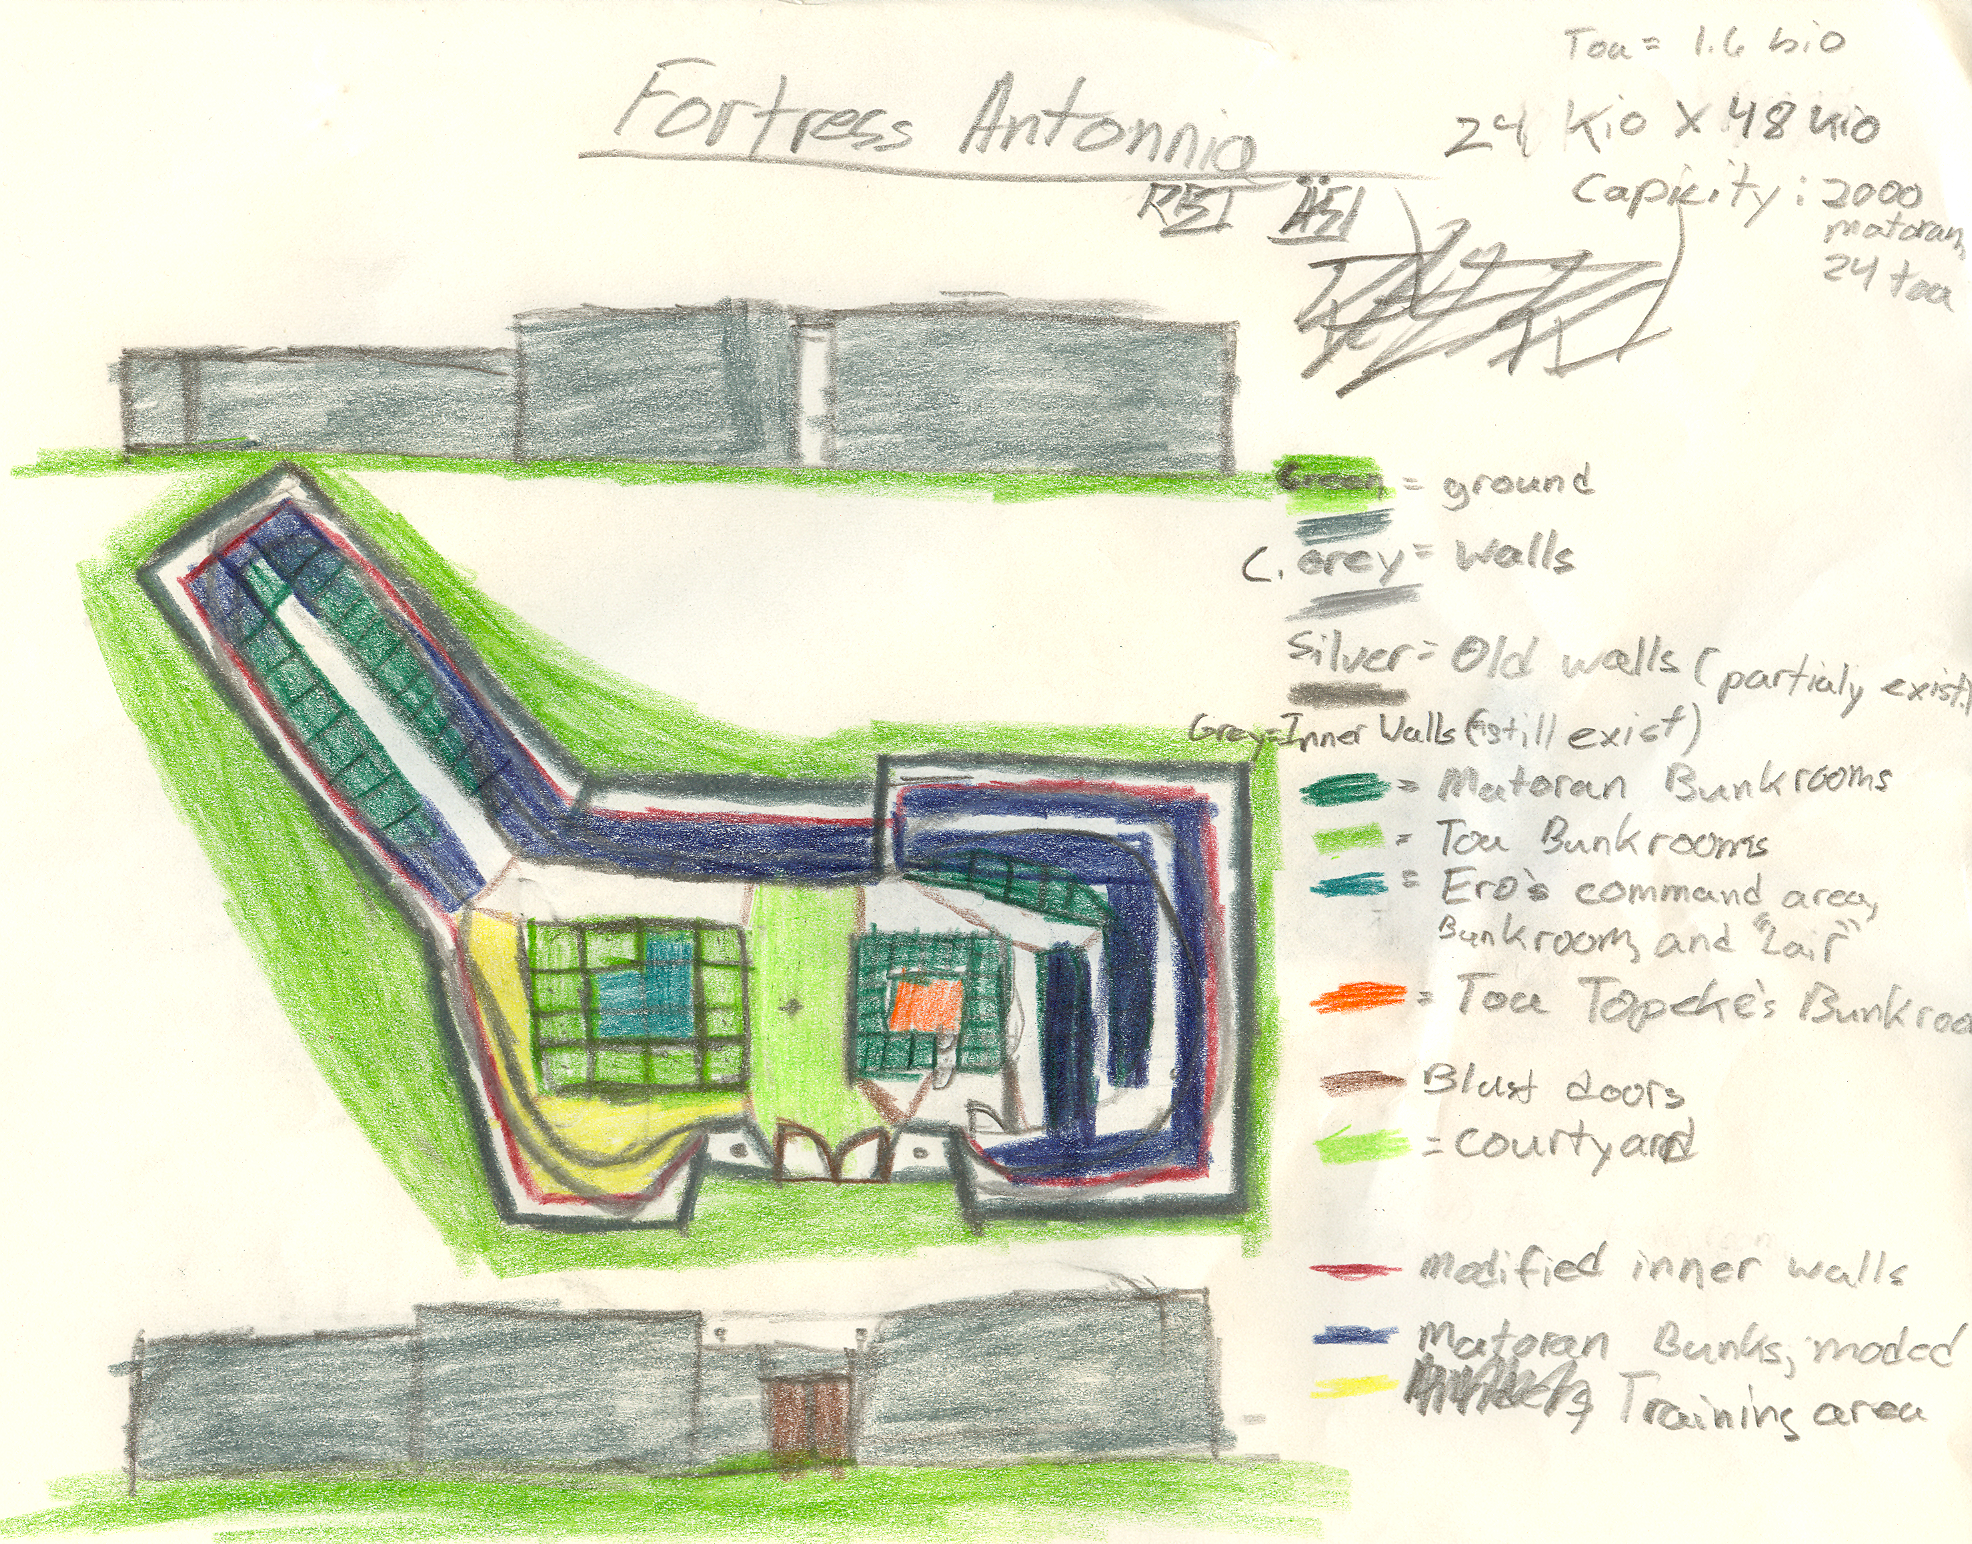 Toa = 1.6 bio
Fortress Antonnia
24 Kio X 48 Kio
Capicity: 2000
matoran,
24 toa
Green = ground
C. Grey = walls
Silver = Old walls (partialy exist)
Grey = Inner Walls (still exist)
= Matoran Bunkrooms
= Toa Bunkrooms
= Ero's command area,
Bunkroom, and "Lair"
= Toa Topeke's Bunkroo
Blast doors
= Courtyard
Modified inner walls
Matoran Bunks, moded
Training area